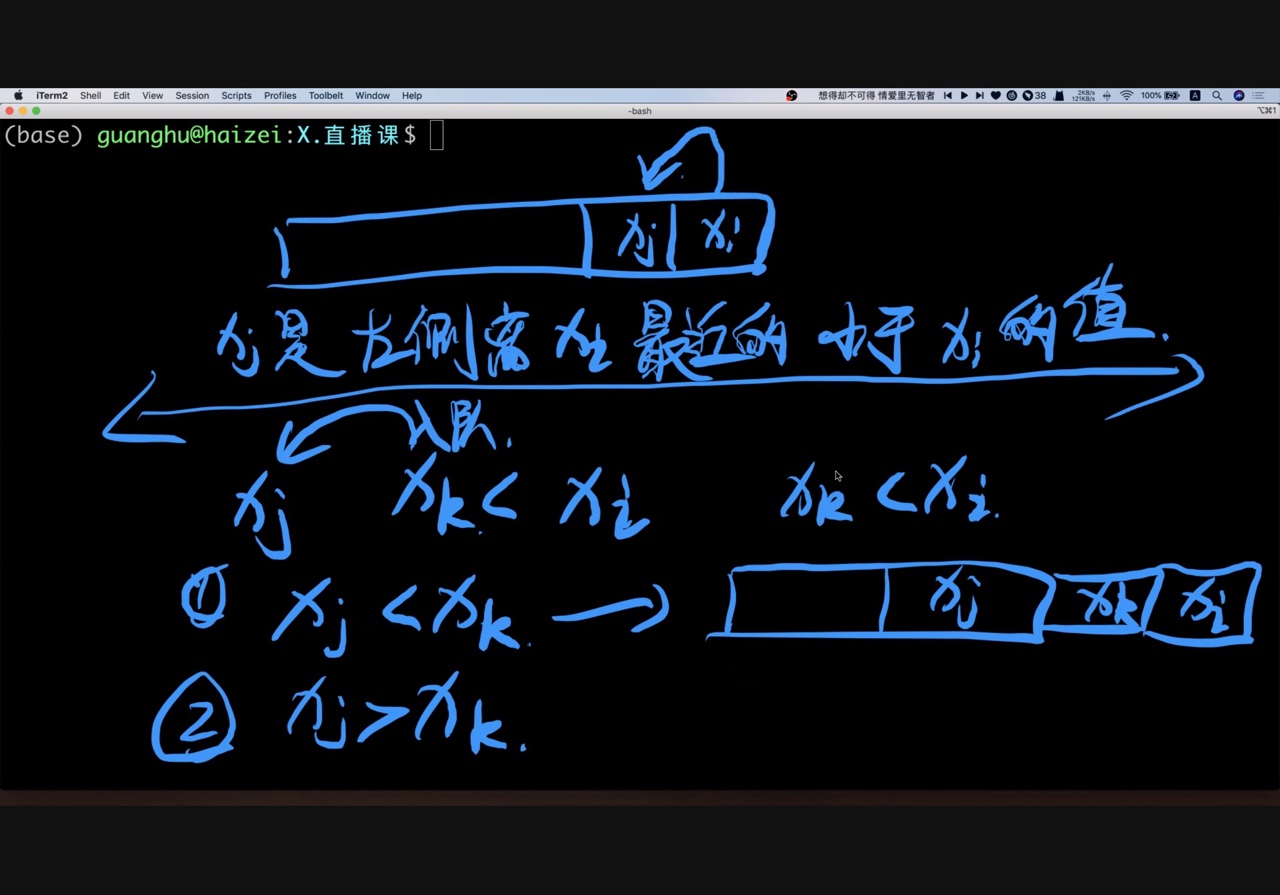 iTerm2 Shell Edit View Session Scripts Profiles Toolbelt Window Help 想得却不可得 情爱里无智者 38 2KB/s 121KB/s 100% A
-bash ⌥⌘1
(base) guanghu@haizei:X.直播课$
xj xi
xj是左侧离xi最近的小于xi的值.
入队.
xj xk< xi xk <xi.
① xj <xk. → xj xk xi
② xj>xk.